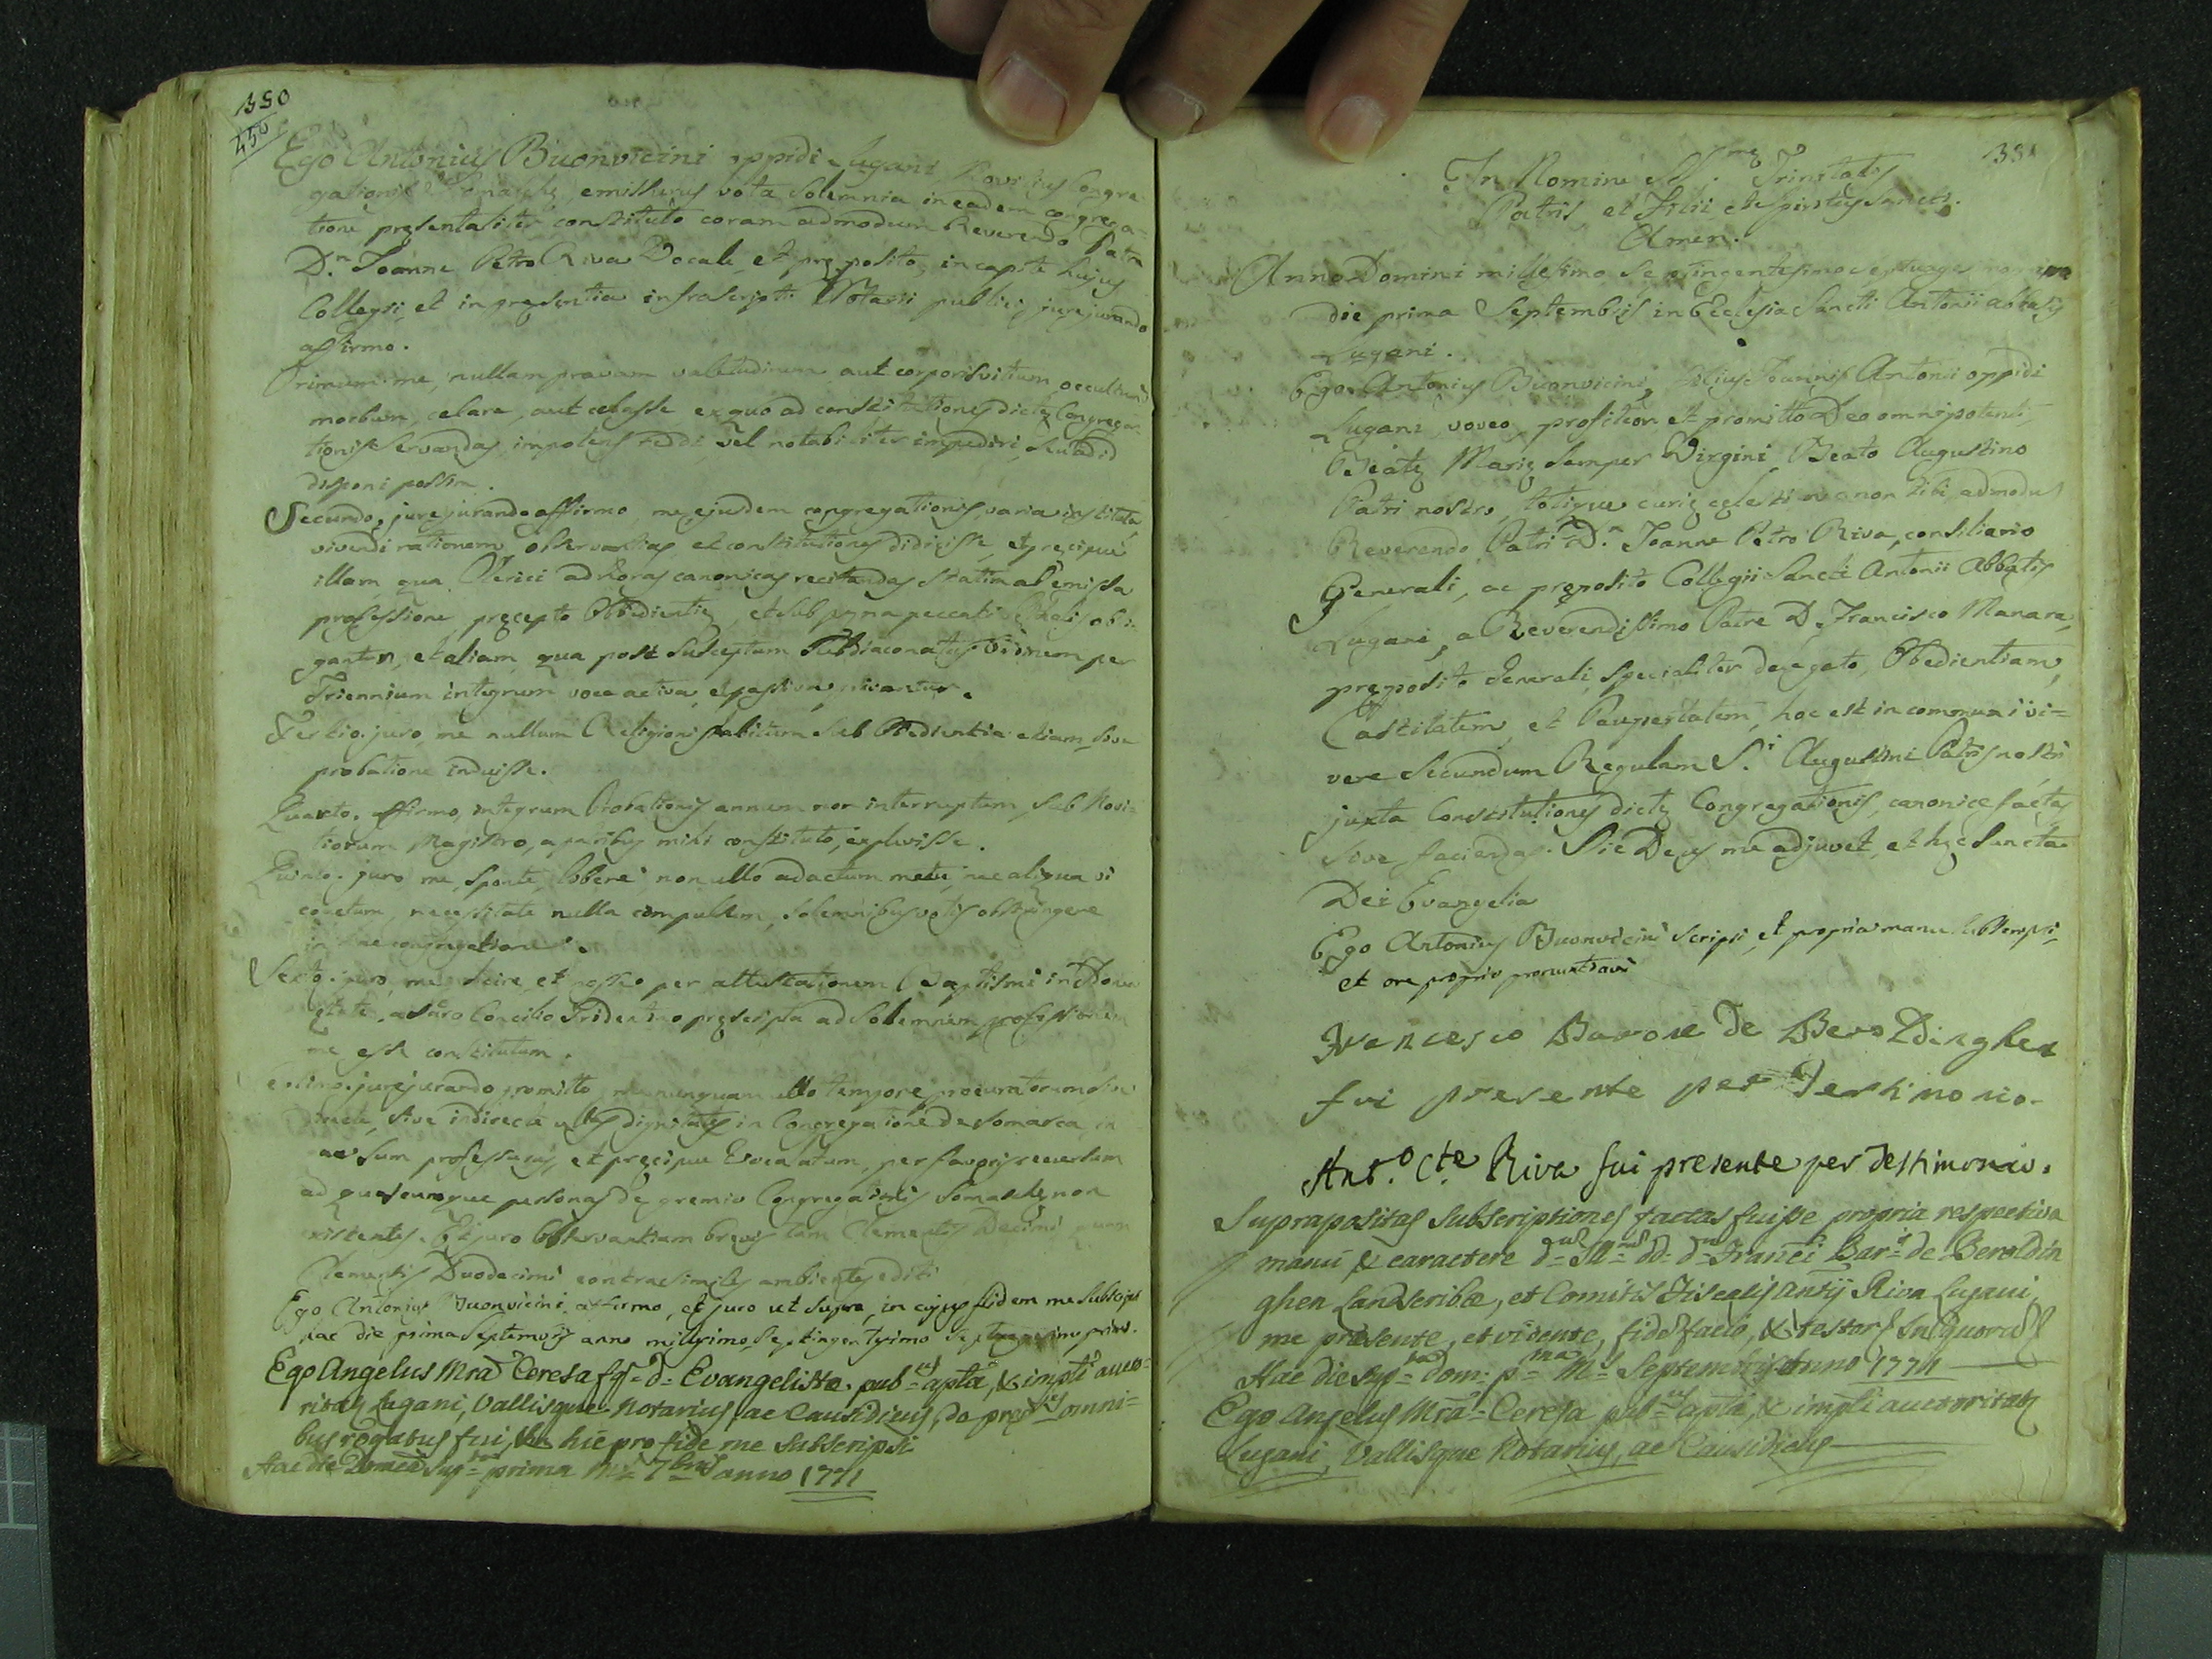 350
450
Ego Antonius Buonvicini oppidi Lugani Novitius Congre-
gationis Somaschę, emissurus vota solemnia in eadem congrega-
tione pręsentaliter constituto coram admodum Reverendo Patre
D.n Joanne Petro Riva Vocale, et pręposito, in capite hujus
Collegii, et in pręsentia infrascripti Notarii publici, jurejurando
affirmo.
Primum me, nullam pravam valetudinem, aut corporis vitium, occultum
morbum, celare, aut celasse ex quo ad constitutiones dictę Congrega-
tionis servandas impotens reddi, vel notabiliter impediri, seu ad id
disponi possim.
Secundo, jurejurando affirmo, me, ejusdem congregationis, varia instituta,
vivendi rationem, observantias, et constitutiones didicisse, et pręcipuè
illam, qua Clerici ad horas canonicas recitandas statim ab emissa
professione, pręcepto Obedientię, et sub pęna peccati obli-
gantur, et aliam, qua post susceptum Subdiaconatus Ordinem per
Triennium integrum voce activa, et passiva, privantur.
Tertio. juro, me nullum Religionis habitum sub Obedientia etiam, sive
probatione induisse.
Quarto. affirmo, integrum Probationis annum non interruptum, sub Novi-
tiorum Magistro, a patribus mihi constituto, explevisse.
Quinto. juro me, sponte, liberè non ullo adactum metu, nec aliqua vi
coactum, necessitate nulla compulsum, solemnibus votis obstringere
in hac congregatione.
Sexto. juro, me scire, et nosco per attestationem Baptismi in
ętate, a sacro Concilio Tridentino pręscripta ad solemnem professionem
me esse constitutum.
Septimo. jurejurando promitto, me nunquam ullo tempore procuraturum sive
directe, sive indirecte ullas dignitates in Congregatione de Somasca, in
qua sum professurus, et pręcipue Vocalatum, per favores recursum
ad quascumque personas de gremio Congregationis Somaschę non
existentes. Et juro observantiam brevis tam Clementis Decimi quam
Clementis Duodecimi contra similes ambientes editi
Ego Antonius Buonvicini affirmo, et juro ut supra, in cujus fidem me subscripsi
hac die prima septembris anno millesimo septingentesimo septuagesimo primo.
Ego Angelus Mra Ceresa fq. d. Evangelistæ pub.cus aptâ, & imptî aucto-
ritatę Lugani, Vallisque Notarius, ac Causidicus, de pręs omni-
bus rogatus fui, & hic pro fide me subscripsi
Hac die Domcâ sup prima M. 7bris anno 1771
351
In Nomine SS.mę Trinitatis
Patris, et Filii, et Spiritus Sancti.
Amen.
Anno Domini millesimo septingentesimo septuages
die prima Septembris in Ecclesia Sancti Antonii abbatis
Lugani.
Ego Antonius Buonvicini, filius Joannis Antonii oppidi
Lugani voveo, profiteor et promitto Deo omnipotenti,
Beatę Marię semper Virgini, Beato Augustino
Patri nostro, totique curię cęlesti necnon tibi, admodum
Reverendo Patri D.n Joanne Petro Riva, consiliario
Generali, ac pręposito Collegii Sancti Antonii Abbatis
Lugani, a Reverendissimo Patre D. Francisco Manara,
pręposito Generali specialiter delegato, Obedientiam,
Castitatem, et Paupertatem, hoc est in communi vi-
vere secundum Regulam S.i Augustini Patris nostri
juxta Constitutiones dictę Congregationis, canonice factas
sive, faciendas. Sic Deus me adjuvet, et hęc sancta
Dei Evangelia
Ego Antonius Buonvicini scripsi, et propria manu subscripsi,
et ore proprio pronuntiavi
Francesco Barone de Beroldinghen
fui presente per Testimonio.
Ant.o C.te Riva fui presente per testimonio.
Suprapositas subscriptiones factas fuisse propria respectiva
manu & caractere d Ill dd. d Franci Bar.s de Beroldin
ghen Landscribæ, et Comitis Fiscalis Antij Riva Lugani,
me præsente, et vidente, fidē facio, & testor. In quorū
Hac die sup dom. p.ma M. Septembris Anno 1771
Ego Angelus Mra Ceresa pub.cus aptâ, & imptî auctoritatę
Lugani, Vallisque Notarius, ac Causidicus